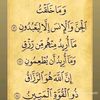 وَمَا خَلَقْتُ
الْجِنَّ وَالْإِنْسَ إِلَّا لِيَعْبُدُونِ
مَا أُرِيدُ مِنْهُمْ مِنْ رِزْقٍ
وَمَا أُرِيدُ أَنْ يُطْعِمُونِ
إِنَّ اللَّهَ هُوَ الرَّزَّاقُ
ذُو الْقُوَّةِ الْمَتِينُ